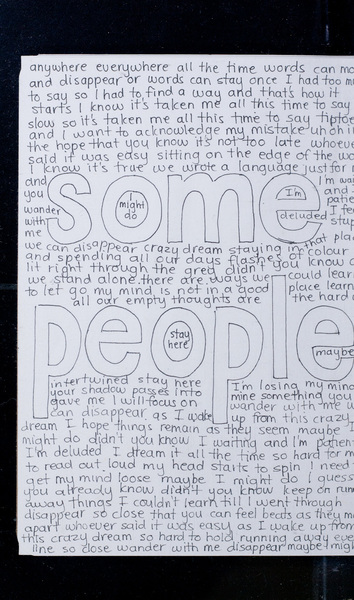 anywhere everywhere all the time words can mo
and disappear or words can stay once I had too mu
to say so I had to find a way and that's how it
starts I know it's taken me all this time to say
slow so it's taken me all this time to say tiptoe
and I want to acknowledge my mistake uh oh in
the hope that you know it's not too late whoeve
said it was easy sitting on the edge of the wo
I know it's true we wrote a language just for m
and
you
wander
with
me
some
I might do
I'm deluded
I'm wa
and
patie
I fe
stup
we can disappear crazy dream staying in that pla
and spending all our days flashes of colour
lit right through the grea didn't you know o
we stand alone there are ways we could lear
to let go my mind is not in a good place learn
all our empty thoughts are the hard
people
stay here
maybe
intertwined stay here
your shadow passes into
gave me I will focus on
can disappear as I wake
I'm losing my mind
mine something you
wander with me u
up from this crazy
dream I hope things remain as they seem maybe I
might do didn't you know I waiting and I'm patien
I'm deluded I dream it all the time so hard for m
to read out loud my head starts to spin I need
get my mind loose maybe I might do I guess
you already know didn't you know keep on run
away things I couldn't learn till I went through
disappear so close that you can feel beats as they mo
apart whoever said it was easy as I wake up from
this crazy dream so hard to hold running away eve
line so close wander with me disappear maybe I migh